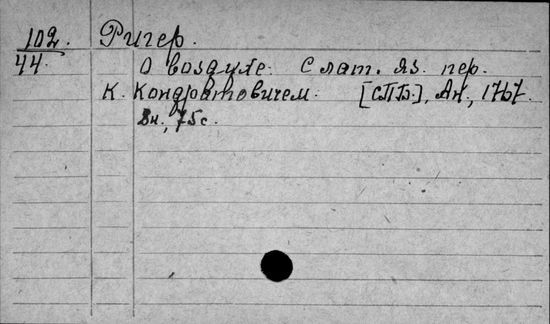 102. Ригер.
44. О воздухе. С лат. яз. пер.
К. Кондратовичем. [СПБ.], Ан., 1767.
8н., 75 с.